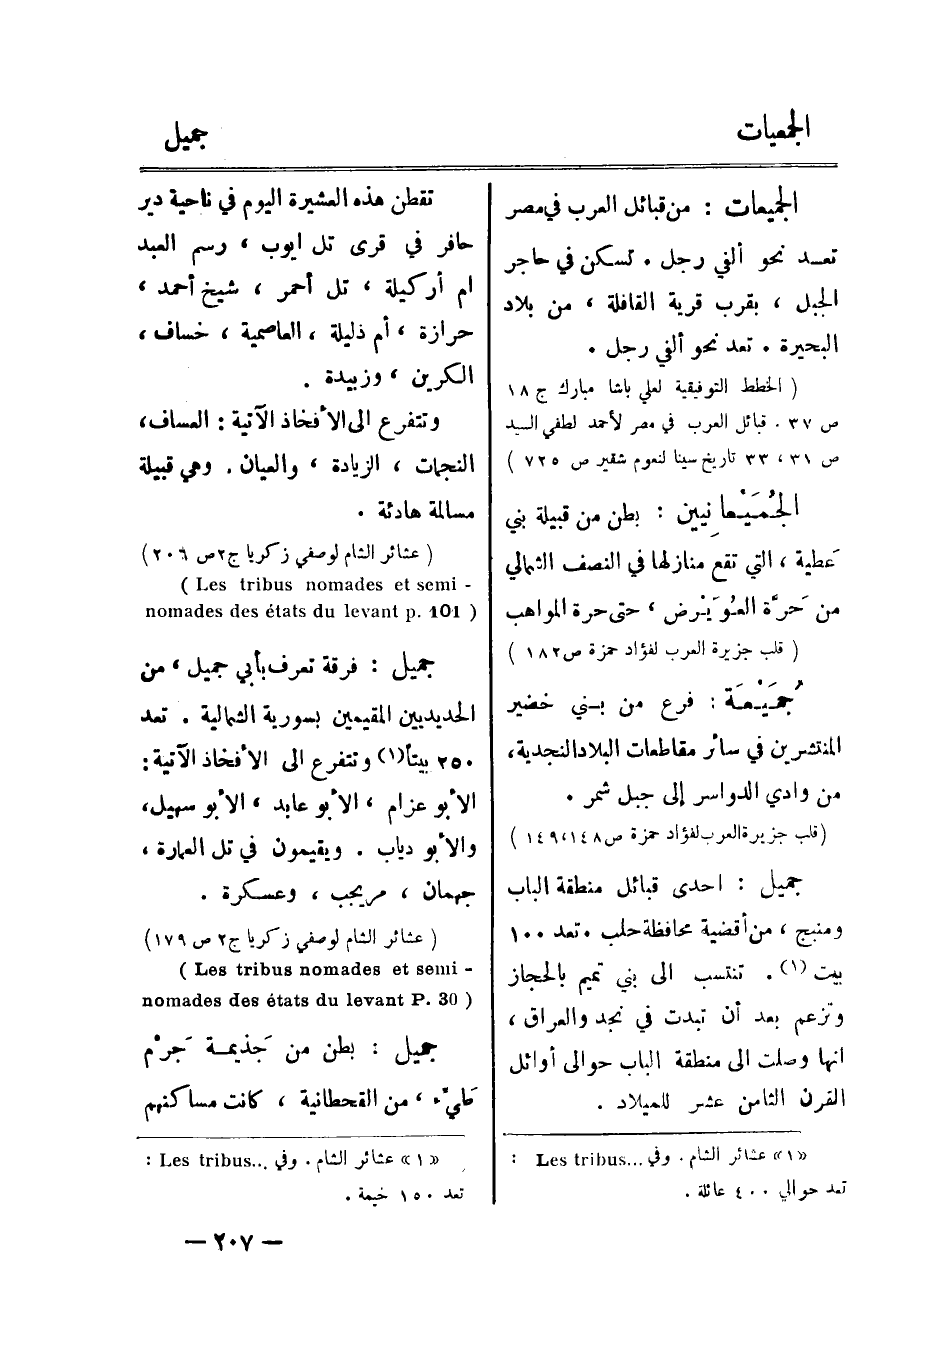 الجمعيات
جميل
الجميعات : من قبائل العرب في مصر
تعد نحو ألفي رجل . تسكن في حاجر
الجبل ، بقرب قرية القافلة ، من بلاد
البحيرة . تعد نحو ألفي رجل .
( الخطط التوفيقية لعلي باشا مبارك ج ١٨
ص ٣٧ . قبائل العرب في مصر لأحمد لطفي السيد
ص ٣١ ، ٣٣ تاريخ سينا لنعوم شقير ص ٧٢٥ )
الجُمَيْعانيين : بطن من قبيلة بني
عَطية ، التي تقع منازلها في النصف الشمالي
من حَرَّة العُوَيْرض ، حتى حرة المواهب
( قلب جزيرة العرب لفؤاد حمزة ص ١٨٢ )
جُمَيْعَة : فرع من بني خضير
المنتشرين في سائر مقاطعات البلاد النجدية،
من وادي الدواسر إلى جبل شمر .
(قلب جزيرة العرب لفؤاد حمزة ص ١٤٨،١٤٩ )
جميل : احدى قبائل منطقة الباب
ومنبج ، من أقضية محافظة حلب . تعد ١٠٠
بيت (١) . تنتسب الى بني تميم بالحجاز
وتزعم بعد أن تبدت في نجد والعراق ،
انها وصلت الى منطقة الباب حوالى أوائل
القرن الثامن عشر للميلاد .
«١» عشائر الشام . وفي Les tribus... :
تعد حوالي ٤٠٠ عائلة .
تقطن هذه العشيرة اليوم في ناحية دير
حافر في قرى تل ايوب ، رسم العبد
ام أركيلة ، تل أحمر ، شيخ أحمد ،
حرازة ، أم ذليلة ، العاصمية ، خساف ،
الكرين ، وزبيدة .
وتتفرع الى الأفخاذ الآتية : العساف،
النجات ، الزيادة ، والعيان . وهي قبيلة
مسالمة هادئة .
( عشائر الشام لوصفي زكريا ج٢ ص ٢٠٦ )
( Les tribus nomades et semi -
nomades des états du levant p. 101 )
جميل : فرقة تعرف بأبي جميل ، من
الحديديين المقيمين بسورية الشمالية . تعد
٢٥٠ بيتاً (١) وتتفرع الى الأفخاذ الآتية :
الأبو عزام ، الأبو عابد ، الأبو سهيل،
والأبو دياب . ويقيمون في تل العمارة ،
جهمان ، مريجب ، وعسكرة .
( عشائر الشام لوصفي زكريا ج٢ ص ١٧٩ )
( Les tribus nomades et semi -
nomades des états du levant P. 30 )
جميل : بطن من جَذيمة جَرْم
طَيّء ، من القحطانية ، كانت مساكنهم
«١» عشائر الشام . وفي Les tribus... :
تعد ١٥٠ خيمة .
— ٢٠٧ —